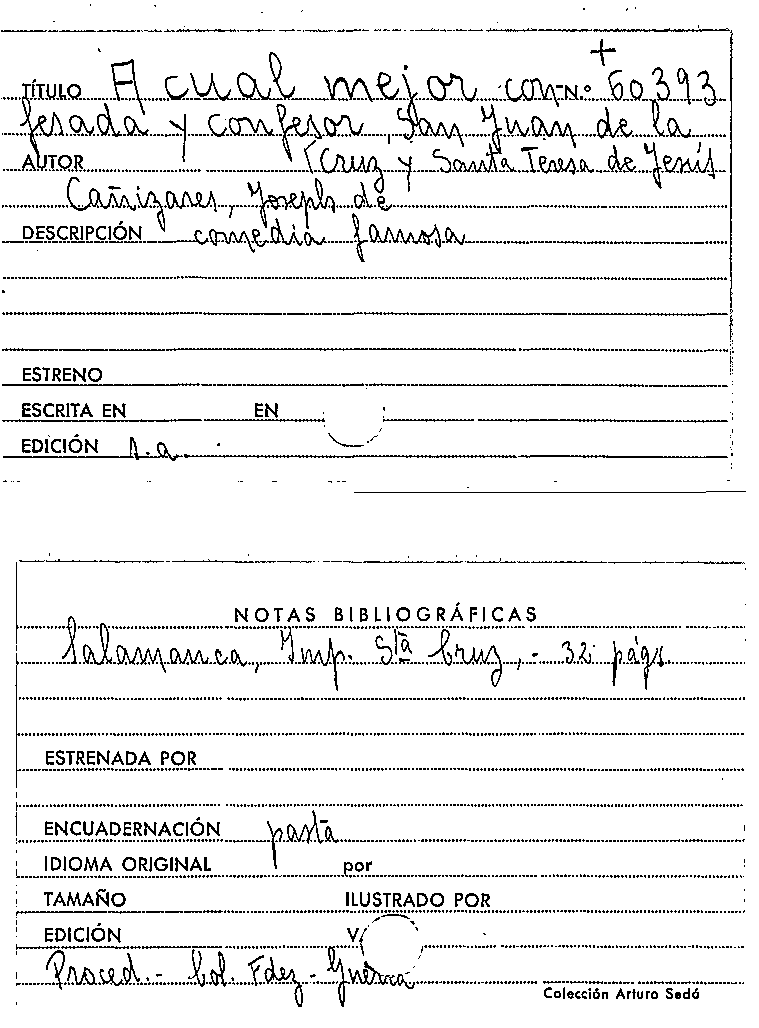 +
TÍTULO A cual mejor con- N.º 60393
fesada y confesor, San Juan de la
AUTOR (Cruz y Santa Teresa de Jesús
Cañizares, Joseph de
DESCRIPCIÓN comedia famosa
ESTRENO
ESCRITA EN EN
EDICIÓN s.a.
NOTAS BIBLIOGRÁFICAS
Salamanca, Imp. Stª Cruz, - 32 págs.
ESTRENADA POR
ENCUADERNACIÓN pasta
IDIOMA ORIGINAL por
TAMAÑO ILUSTRADO POR
EDICIÓN V
Proced.- Col. Fdez-Guerra
Colección Arturo Sedó